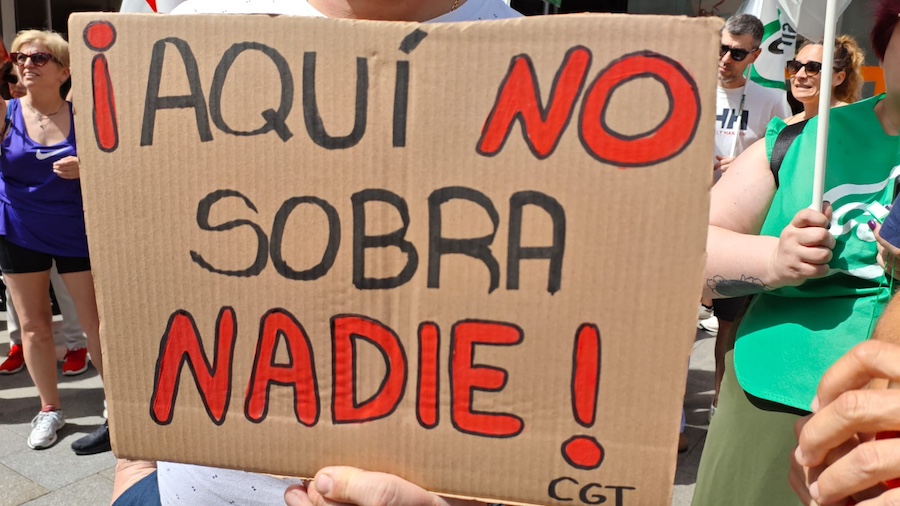 ¡AQUÍ NO
SOBRA
NADIE!
CGT
HH